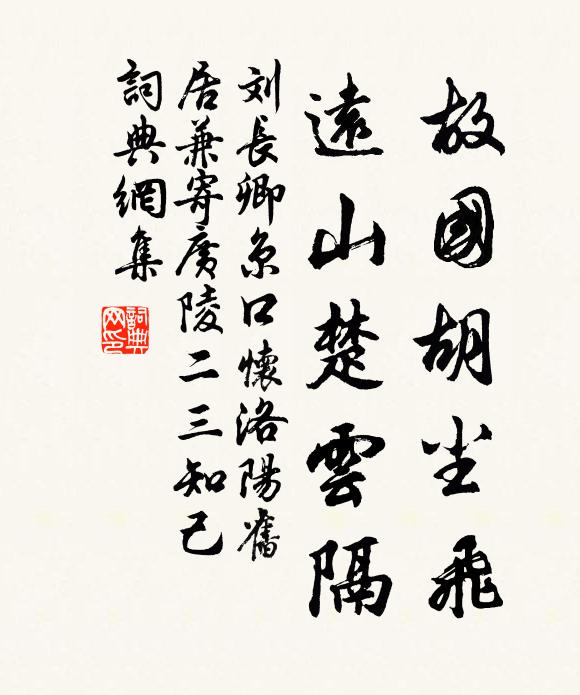 故國胡尘飛
遠山楚雲隔
刘長卿京口懷洛陽舊
居兼寄廣陵二三知己
詞典網集
詞典
网印